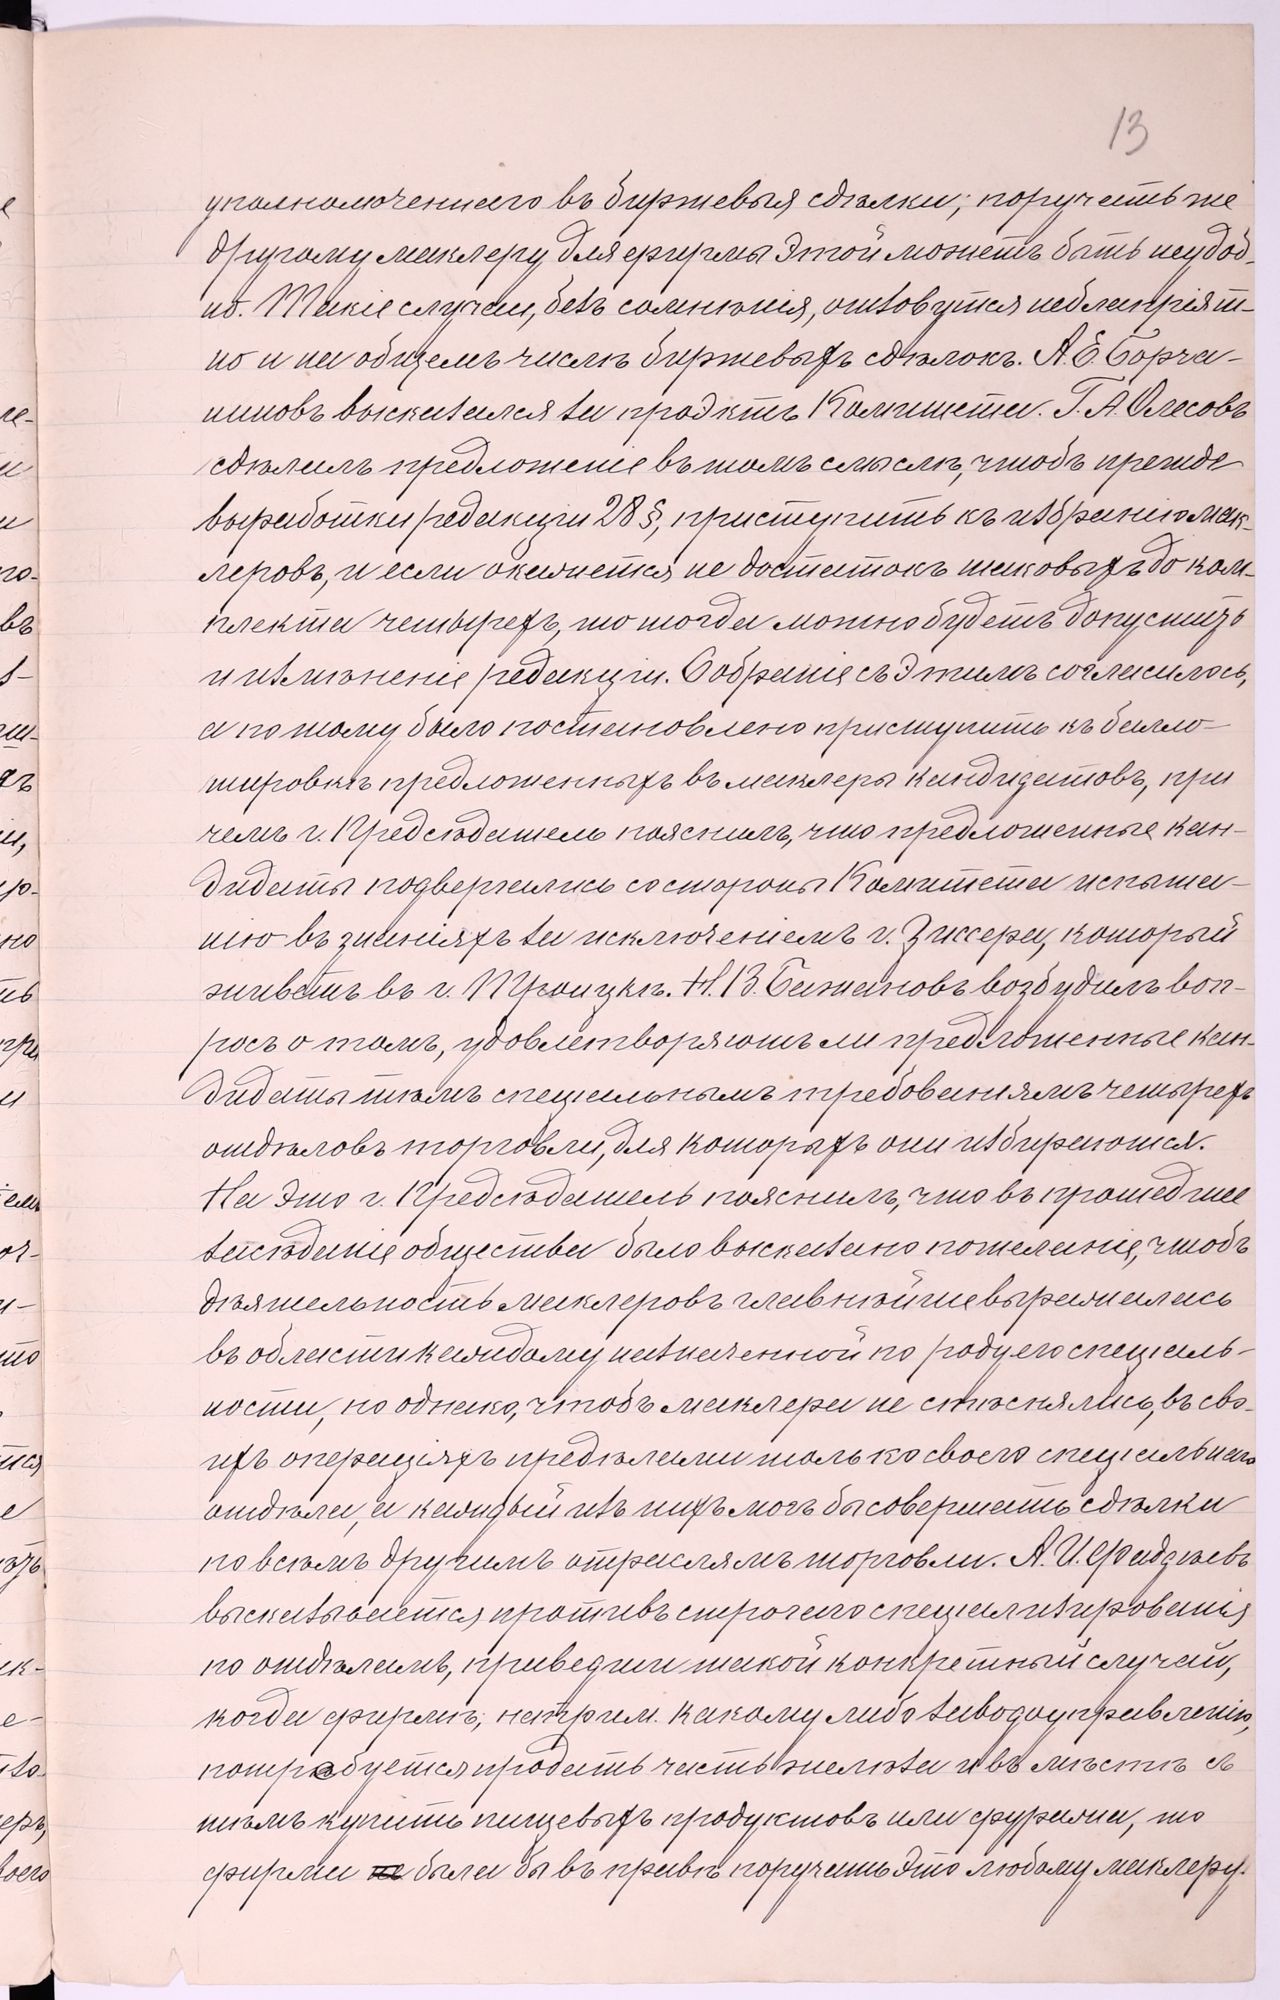 13
уполномоченнаго въ биржевыя сдѣлки; поручать же
другому маклеру для фирмы этой можетъ быть неудоб-
но. Такіе случаи, безъ сомнѣнія, отзовутся неблагопріят-
но и на общемъ числѣ биржевыхъ сдѣлокъ. А. Е. Борча-
ниновъ высказался за проэктъ Комитета. Г. А. Олесовъ
сдѣлалъ предложеніе въ томъ смыслѣ, чтобъ прежде
выработки редакціи 28 §, приступить къ избранію мак-
леровъ, и если окажется не достатокъ таковыхъ до ком-
плекта четырехъ, то тогда можно будетъ допустить
и измѣненіе редакціи. Собраніе съ этимъ согласилось,
а по тому было постановлено приступить къ балло-
тировкѣ предложенныхъ въ маклеры кандидатовъ, при
чемъ г. Предсѣдатель пояснилъ, что предложенные кан-
дидаты подвергались со стороны Комитета испыта-
нію въ знаніяхъ за исключеніемъ г. Зиссера, который
живетъ въ г. Троицкѣ. Н. В. Бажановъ возбудилъ воп-
росъ о томъ, удовлетворяютъ ли предложенные кан-
дидаты тѣмъ спеціальнымъ требованіямъ четырехъ
отдѣловъ торговли, для которыхъ они избираются.
На это г. Предсѣдатель пояснилъ, что въ прошедшее
засѣданіе общества было высказано пожеланіе, чтобъ
дѣятельность маклеровъ главнѣйше выражалась
въ области каждому назначенной по роду его спеціаль-
ности, но однако, чтобъ маклера не стѣснялись, въ сво-
ихъ операціяхъ предѣлами только своего спеціальнаго
отдѣла, а каждый изъ нихъ могъ бы совершать сдѣлки
по всѣмъ другимъ отраслямъ торговли. А. И. Фадѣевъ
высказывается противъ строгаго спеціализированія
по отдѣламъ, приведши такой конкретный случай,
когда фирмѣ, наприм. какому либо заводоуправленію,
потребуется продать часть желѣза и въ мѣстѣ съ
нимъ купить пищевыхъ продуктовъ или фуража, то
фирма не была бы въ правѣ поручать это любому маклеру.